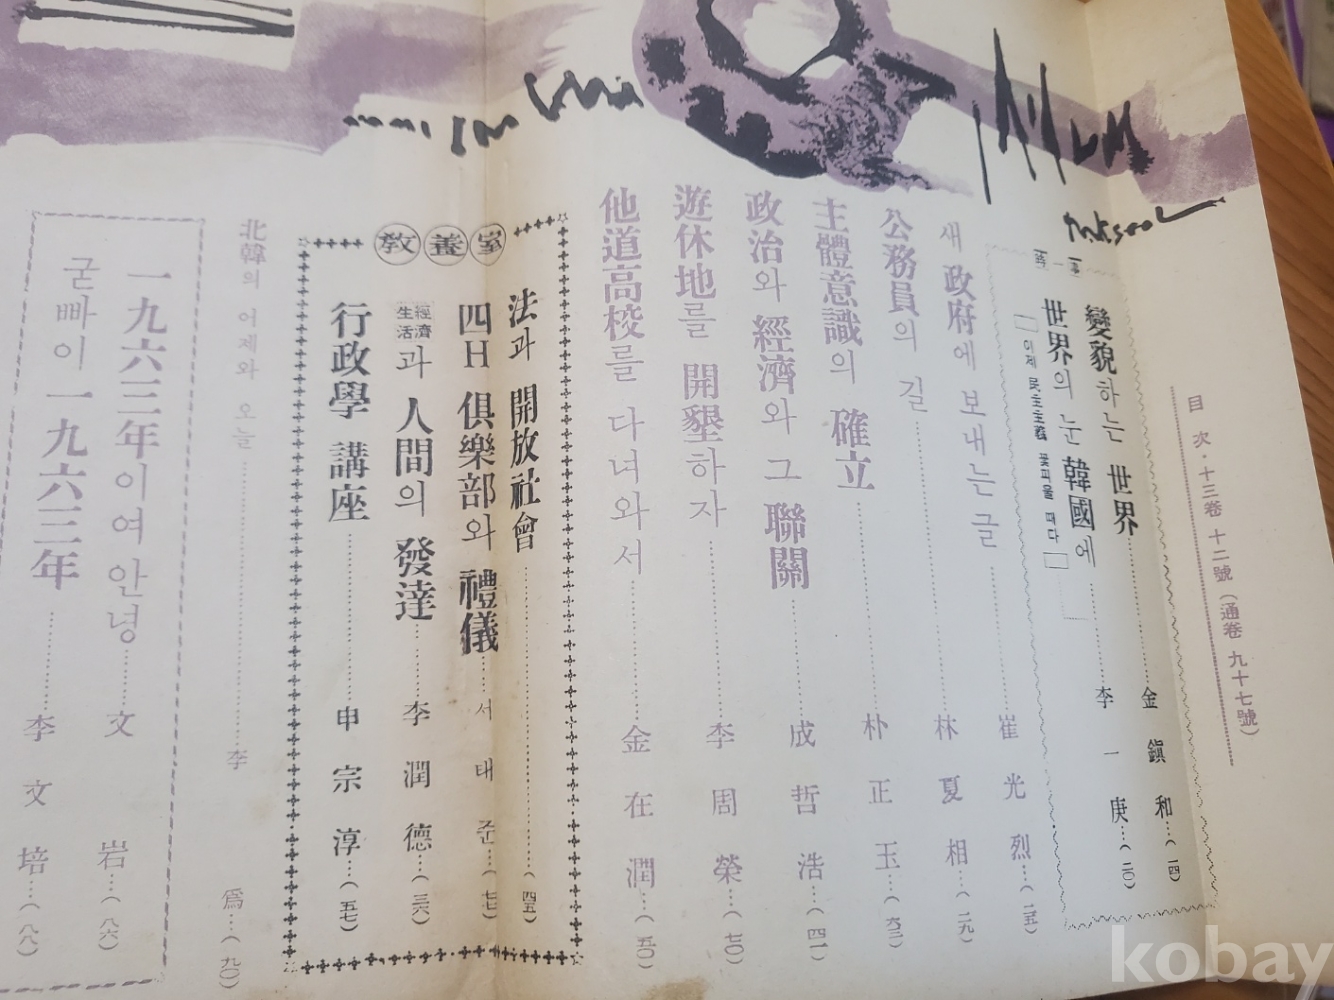 目次·十三卷 十二號(通卷 九十七號)
時事
變貌하는 世界……金鎭和…(一四)
世界의 눈 韓國에……李一庚…(二〇)
이제 民主主義 꽃피울 때다
새 政府에 보내는 글……崔光烈…(二五)
公務員의 길……林夏相…(二九)
主體意識의 確立……朴正玉…(六三)
政治와 經濟와 그 聯關……成哲浩…(四一)
遊休地를 開墾하자……李周榮…(七〇)
他道高校를 다녀와서……金在潤…(五〇)
敎養室
法과 開放社會……(四五)
四H 俱樂部와 禮儀……서태준…(七七)
經濟生活과 人間의 發達……李潤德…(三六)
行政學 講座……申宗淳…(五七)
北韓의 어제와 오늘……李爲…(九〇)
一九六三年이여 안녕……文岩…(八六)
굳빠이 一九六三年……李文培…(八八)
kobay